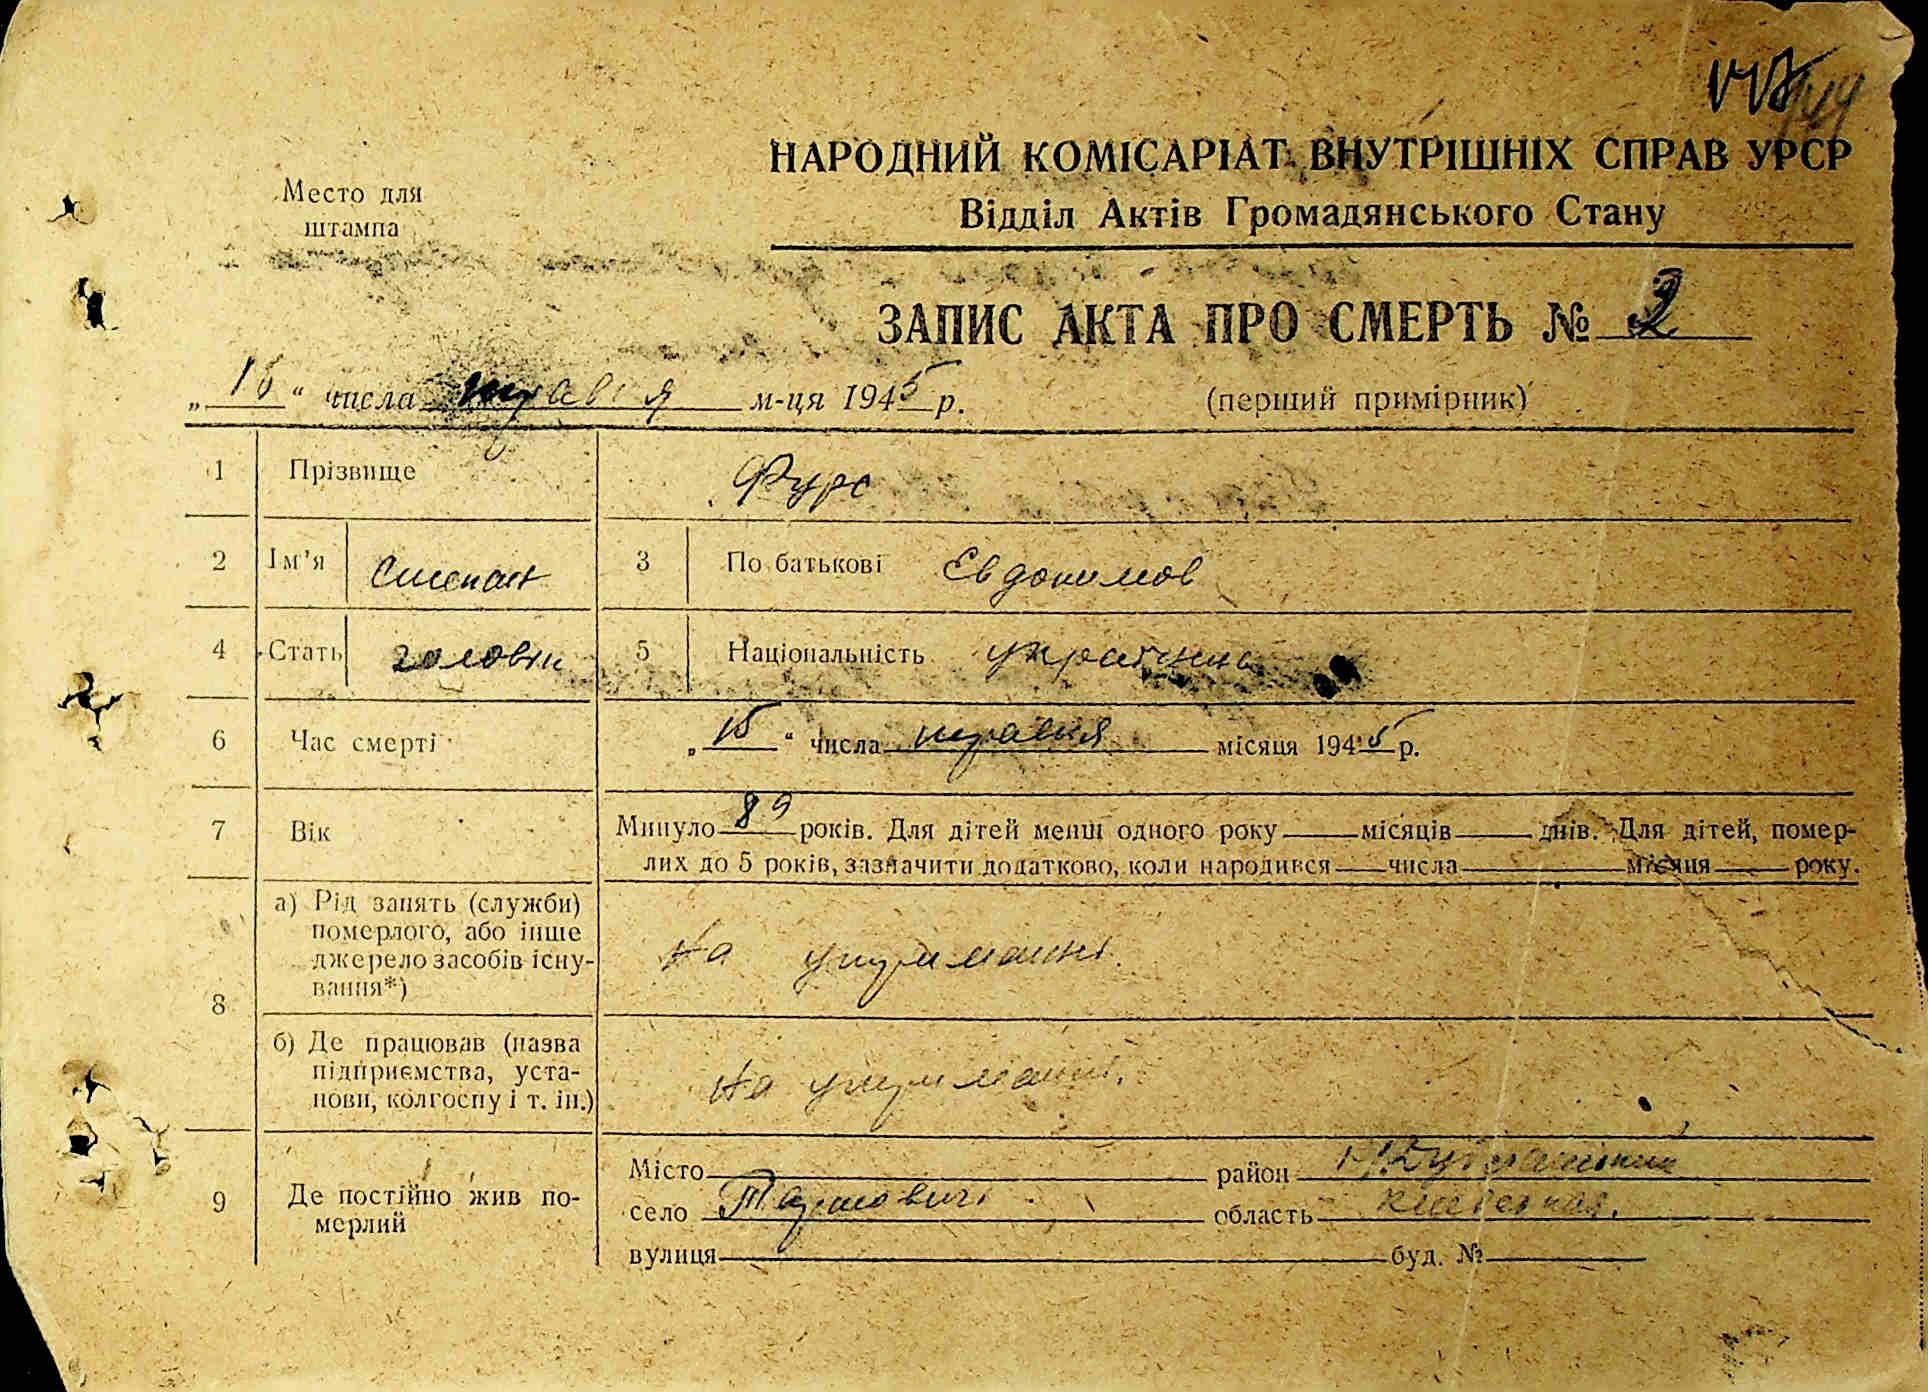 НАРОДНИЙ КОМІСАРІАТ ВНУТРІШНІХ СПРАВ УРСР
Відділ Актів Громадянського Стану
Место для
штампа
ЗАПИС АКТА ПРО СМЕРТЬ №
„15“ числа травня м-ця 1945 р. (перший примірник)
1 Прізвище Фурс
2 Ім'я Степан 3 По батькові Євдокимов
4 Стать чоловіч 5 Національність
6 Час смерті „15“ числа травня місяця 1945 р.
7 Вік Минуло 89 років. Для дітей менш одного року місяців днів. Для дітей, помер-
лих до 5 років, зазначити додатково, коли народився числа місяця року.
8 а) Рід занять (служби)
померлого, або інше
джерело засобів існу-
вання*) на утриманні.
б) Де працював (назва
підприємства, уста-
нови, колгоспу і т. ін.) на утриманні.
9 Де постійно жив по-
мерлий
Місто район
село область
вулиця буд. №